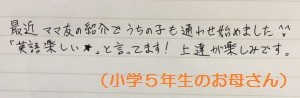 最近 ママ友の紹介でうちの子も通わせ始めました^^
「英語楽しい★」と言ってます! 上達が楽しみです。
(小学5年生のお母さん)